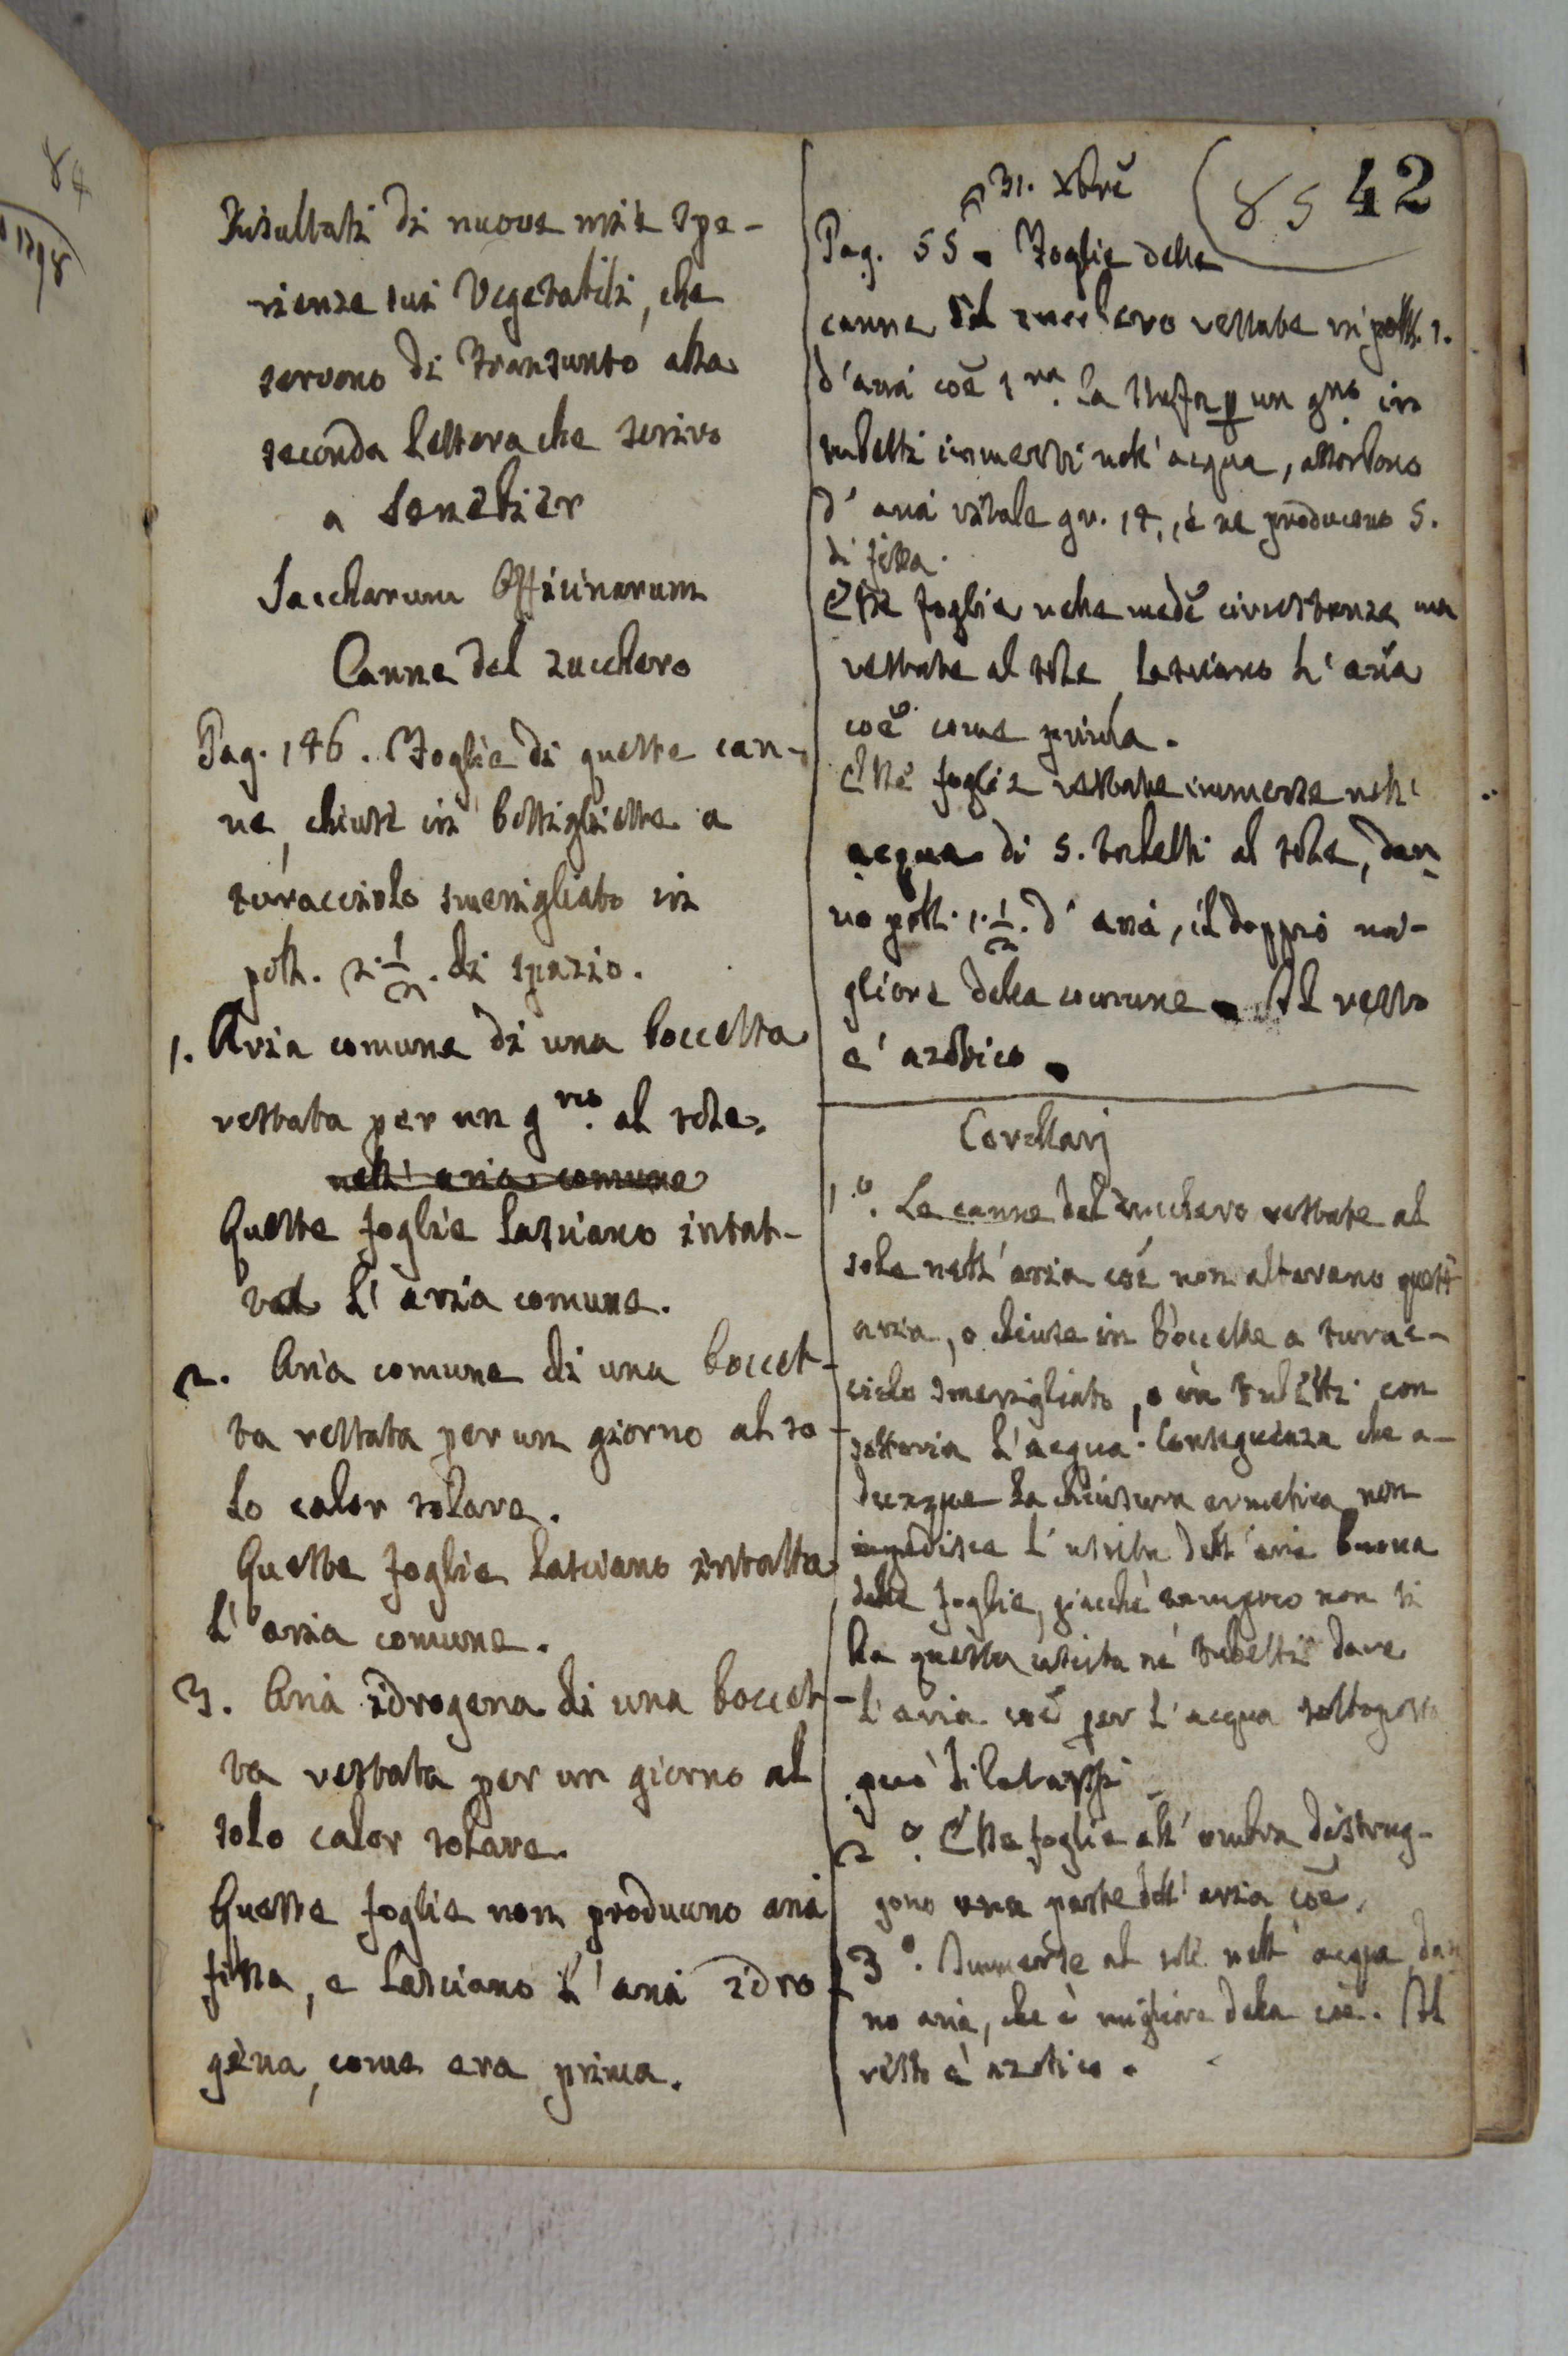 84
1798
Risultati di nuove mie spe-
rienze sui Vegetabili, che
servono di transunto alla
seconda lettera che scrivo
a Senebier
Saccharum Officinarum
Canne del zucchero
Pag. 146. Foglie di queste can-
ne, chiuse in bottigliette a
turacciolo smerigliato in
poll. 2. 1/2. di spazio.
1. Aria comune di una boccetta
restata per un g.no al sole.
nell'aria comune
Queste foglie lasciano intat-
ta l'aria comune.
2. Aria comune di una boccet-
ta restata per un giorno al so-
lo calor solare.
Queste foglie lasciano intatta
l'aria comune.
3. Aria idrogena di una boccet-
ta restata per un giorno al
solo calor solare.
Queste foglie non producono aria
fissa, e lasciano l'aria idro
gena, come era prima.
(85 42
31. Xbrē
Pag. 55. Foglie delle
canne del zucchero restate in poll. 1.
d'aria coē all' ombra per un g.no in
tubetti immersi nell'acqua, assorbono
d'aria vitale gr. 14., e ne producono 5.
di fissa.
Esse foglie nelle medē circostanze, ma
restate al sole lasciano l'aria
coē come prima.
Esse foglie restate immerse nell'
acqua di 5. tubetti al sole, dan
no poll. 1. 1/2. d'aria, il doppio mi-
gliore della comune. Il resto
e' azotico.
Corollarj
1.° Le canne del zucchero restate al
sole nell'aria coē non alterano quest'
aria, o chiuse in boccette a turac-
ciolo smerigliato, o in tubetti con
sottovia l'acqua. Conseguenza che a-
dunque la chiusura ermetica non
impedisce l'uscita dell'aria buona
dalle foglie, giacchè nemmeno non si
ha questa uscita ne' tubetti dove
l'aria coē per l'acqua sottoposta
può dilatarsi
2.° Esse foglie all'ombra distrug-
gono una parte dell'aria coē.
3.° Immerse al sole nell'acqua dan
no aria, che è migliore della coē. Il
resto è azotico.